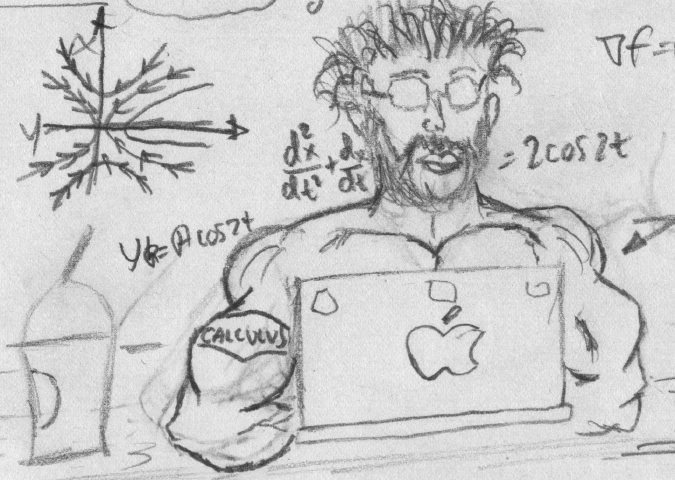 y
∇f =
d²x/dt² + dx/dt = 2cos2t
y = A cos2t
CALCULUS